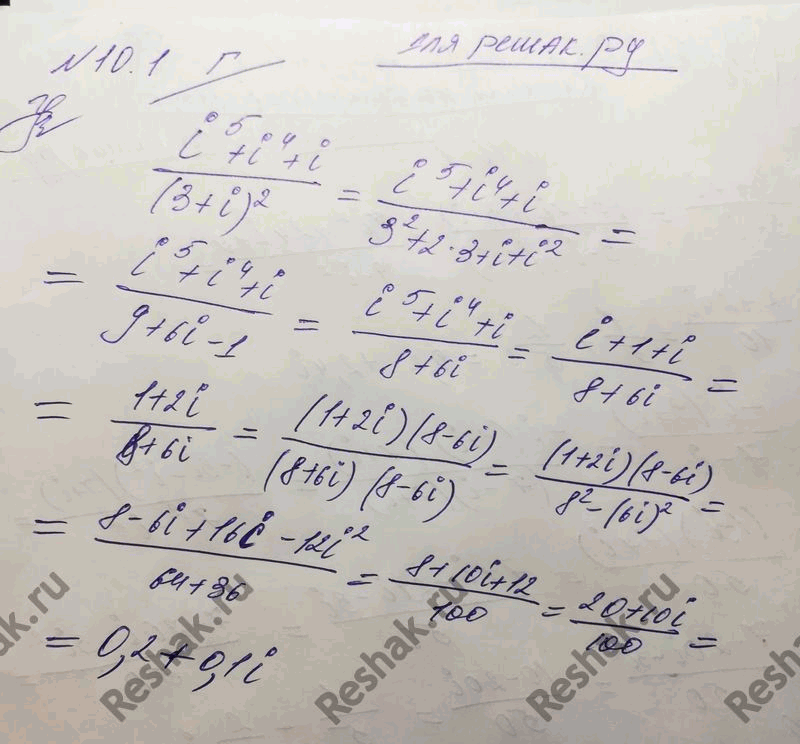 №10.1 г для решак.ру
(i^5+i^4+i)/(3+i)^2 = (i^5+i^4+i)/(3^2+2·3+i+i^2) =
= (i^5+i^4+i)/(9+6i-1) = (i^5+i^4+i)/(8+6i) = (i+1+i)/(8+6i) =
= (1+2i)/(8+6i) = ((1+2i)(8-6i))/((8+6i)(8-6i)) = ((1+2i)(8-6i))/(8^2-(6i)^2) =
= (8-6i+16i-12i^2)/(64+36) = (8+10i+12)/100 = (20+10i)/100 =
= 0,2+0,1i
Reshak.ru
Reshak.ru
Reshak.ru
Reshak.ru